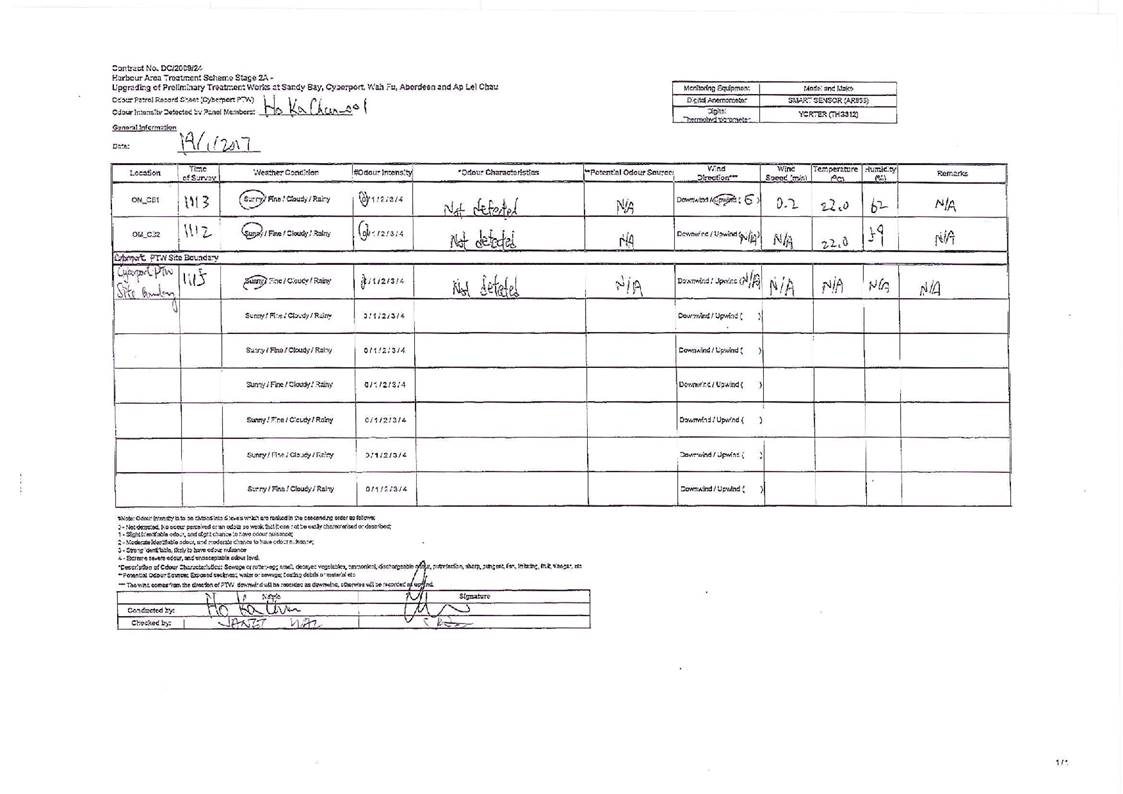 Contract No. DC/2009/24
Harbour Area Treatment Scheme Stage 2A -
Upgrading of Preliminary Treatment Works at Sandy Bay, Cyberport, Wah Fu, Aberdeen and Ap Lei Chau
Odour Patrol Record Sheet (Cyberport PTW)
Odour Intensity Detected by Panel Members: Ho Ka Chun
General Information
Date: 19/1/2017
Monitoring Equipment Model and Make
Digital Anemometer SMART SENSOR (AR836)
Digital Thermohydrometer YCRTER (TH3312)
Location Time of Survey Weather Condition #Odour Intensity *Odour Characteristics **Potential Odour Source Wind Direction*** Wind Speed (m/s) Temperature (°C) Humidity (%) Remarks
1113 Sunny / Fine / Cloudy / Rainy 0/1/2/3/4 Not detected N/A Downwind / Upwind ( ) 0.2 22.0 62 N/A
1112 Sunny / Fine / Cloudy / Rainy 0/1/2/3/4 Not detected N/A Downwind / Upwind (N/A) N/A 22.0 59 N/A
Cyberport PTW Site Boundary
Cyberport PTW Site Boundary 1115 Sunny / Fine / Cloudy / Rainy 0/1/2/3/4 Not detected N/A Downwind / Upwind (N/A) N/A N/A N/A N/A
Sunny / Fine / Cloudy / Rainy 0/1/2/3/4 Downwind / Upwind ( )
Sunny / Fine / Cloudy / Rainy 0/1/2/3/4 Downwind / Upwind ( )
Sunny / Fine / Cloudy / Rainy 0/1/2/3/4 Downwind / Upwind ( )
Sunny / Fine / Cloudy / Rainy 0/1/2/3/4 Downwind / Upwind ( )
Sunny / Fine / Cloudy / Rainy 0/1/2/3/4 Downwind / Upwind ( )
Sunny / Fine / Cloudy / Rainy 0/1/2/3/4 Downwind / Upwind ( )
#Note: Odour intensity is to be divided into 5 levels which are ranked in the descending order as follows:
0 - Not detected. No odour perceived or an odour so weak that it can not be easily characterised or described;
1 - Slight identifiable odour, and slight chance to have odour nuisance;
2 - Moderate identifiable odour, and moderate chance to have odour nuisance;
3 - Strong identifiable, likely to have odour nuisance
4 - Extreme severe odour, and unacceptable odour level.
*Description of Odour Characteristics: Sewage or rotten-egg smell, decayed vegetables, ammonical, dischargeable odour, putrefaction, sharp, pungent, fish, irritating, fruit, vinegar, etc
**Potential Odour Source: Exposed sediment, water or sewage; floating debris or material etc
*** The wind comes from the direction of PTW downwind will be recorded as downwind, otherwise will be recorded as upwind.
Name Signature
Conducted by: Ho Ka Chun
Checked by: JANET
1/1